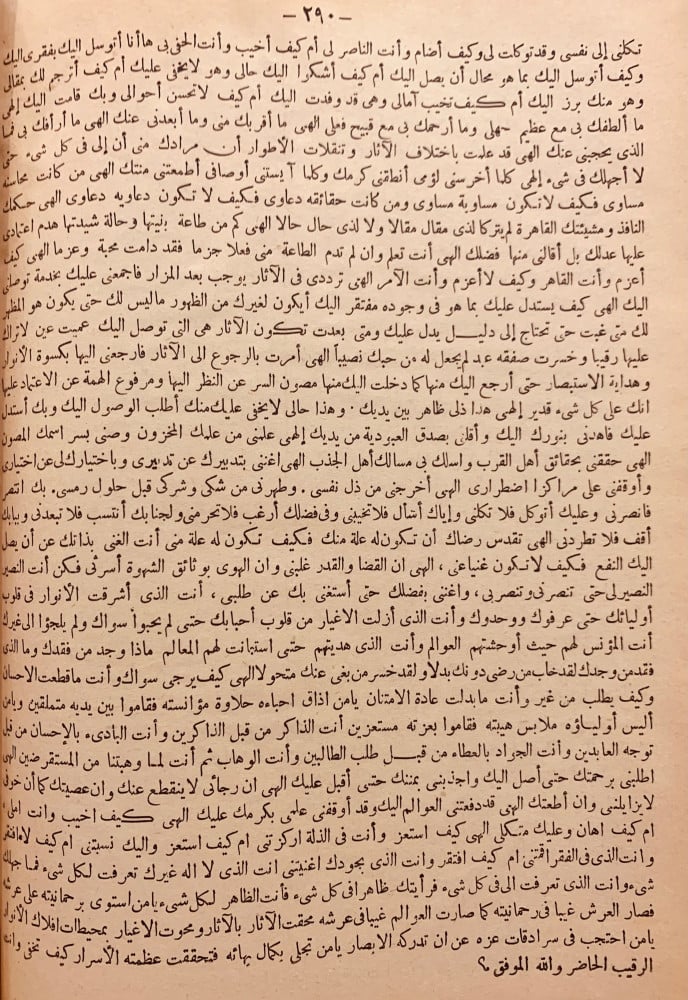 — ٢٩٠ —
تكلنى إلى نفسى وقد توكلت لى وكيف أضام وأنت الناصر لى أم كيف أخيب وأنت الحفى بى هاأنا أتوسل اليك بفقرى اليك
وكيف أتوسل اليك بما هو محال أن يصل اليك أم كيف أشكوا اليك حالى وهو لايخفى عليك أم كيف أترجم لك بمقالى
وهو منك برز اليك أم كيف تخيب آمالى وهى قد وفدت اليك أم كيف لاتحسن أحوالى وبك قامت اليك إلهى
ما ألطفك بى مع عظيم جهلى وما أرحمك بى مع قبيح فعلى الهى ما أقربك منى وما أبعدنى عنك الهى ما أرأفك بى فما
الذى يحجبنى عنك الهى قد علمت باختلاف الآثار وتنقلات الأطوار أن مرادك منى أن إلى فى كل شىء حتى
لا أجهلك فى شىء إلهى كلما أخرسنى لؤمى أنطقنى كرمك وكلما آيستنى أوصافى أطمعتنى منتك الهى من كانت محاسنه
مساوى فكيف لاتكون مساوية مساوى ومن كانت حقائقه دعاوى فكيف لا تكون دعاويه دعاوى الهى حكمك
النافذ ومشيئتك القاهرة لم يتركا لذى مقال مقالا ولا لذى حال حالا الهى كم من طاعة بنيتها وحالة شيدتها هدم اعتمادى
عليها عدلك بل أقالنى منها فضلك الهى أنت تعلم وان لم تدم الطاعة منى فعلا جزما فقد دامت محبة وعزما الهى كيف
أعزم وأنت القاهر وكيف لاأعزم وأنت الآمر الهى ترددى فى الآثار يوجب بعد المزار فاجمعنى عليك بخدمة توصلنى
اليك الهى كيف يستدل عليك بما هو فى وجوده مفتقر اليك أيكون لغيرك من الظهور ماليس لك حتى يكون هو المظهر
لك متى غبت حتى تحتاج إلى دليل يدل عليك ومتى بعدت تكون الآثار هى التى توصل اليك عميت عين لاتراك
عليها رقيبا وخسرت صفقه عبد لم يجعل له من حبك نصيباً الهى أمرت بالرجوع الى الآثار فارجعنى اليها بكسوة الأنوار
وهداية الاستبصار حتى أرجع اليك منها كما دخلت اليك منها مصون السر عن النظر اليها ومرفوع الهمة عن الاعتماد عليها
انك على كل شىء قدير إلهى هدا ذلى ظاهر بين يديك . وهذا حالى لايخفى عليك منك أطلب الوصول اليك وبك أستدل
عليك فاهدنى بنورك اليك وأقلنى بصدق العبودية من يديك إلهى علمنى من علمك المخزون وصنى بسر اسمك المصون
الهى حققنى بحقائق أهل القرب واسلك بى مسالك أهل الجذب الهى اغننى بتدبيرك عن تدبيرى وباختيارك لى عن اختيارى
وأوقفنى على مراكزا اضطرارى الهى أخرجنى من ذل نفسى . وطهرنى من شكى وشركى قبل حلول رمسى. بك انتصر
فانصرنى وعليك أتوكل فلا تكلنى وإياك أسأل فلاتخيبنى وفى فضلك أرغب فلاتحرمنى ولجنابك أنتسب فلا تبعدنى وببابك
أقف فلا تطردنى الهى تقدس رضاك أن تكون له علة منك فكيف تكون له علة منى أنت الغنى بذاتك عن أن يصل
اليك النفع فكيف لاتكون غنيا عنى ، الهى ان القضا والقدر غلبنى وان الهوى بوثائق الشهوة أسرنى فكن أنت النصير
النصير لى حتى تنصرنى وتنصر بى ، واغننى بفضلك حتى أستغنى بك عن طلبى ، أنت الذى أشرقت الأنوار فى قلوب
أوليائك حتى عرفوك ووحدوك وأنت الذى أزلت الاغيار من قلوب أحبابك حتى لم يحبوا سواك ولم يلجؤا الى غيرك
أنت المؤنس لهم حيث أوحشتهم العوالم وأنت الذى هديتهم حتى استبانت لهم المعالم ماذا وجد من فقدك وما الذى
فقد من وجدك لقد خاب من رضى دونك بدلا ولقد خسر من بغى عنك متحولا الهى كيف يرجى سواك وأنت ماقطعت الاحسان
وكيف يطلب من غير وأنت مابدلت عادة الامتنان يامن اذاق احباءه حلاوة مؤانسته فقاموا بين يديه متملقين ويامن
أليس أولياؤه ملابس هيبته فقاموا بعزته مستعزين أنت الذاكر من قبل الذاكرين وأنت البادىء بالإحسان من قبل
توجه العابدين وأنت الجواد بالعطاء من قبل طلب الطالبين وأنت الوهاب ثم أنت لما وهبتنا من المستقرضين الهى
اطلبنى برحمتك حتى أصل اليك واجذبنى بمنتك حتى أقبل عليك الهى ان رجائى لاينقطع عنك وان عصيتك كما أن خوفى
لايزايلنى وان أطعتك الهى قد دفعتنى العوالم اليك وقد أوقفنى علمى بكرمك عليك الهى كيف اخيب وانت املى
ام كيف اهان وعليك متكلى الهى كيف استعز وأنت فى الذلة اركزتنى ام كيف استعز واليك نسبتنى ام كيف لاافتقر
وانت الذى فى الفقر اقمتنى ام كيف افتقر وانت الذى بجودك اغنيتنى انت الذى لا اله غيرك تعرفت لكل شىء فما جهلك
شىء وانت الذى تعرفت الى فى كل شىء فرأيتك ظاهرا فى كل شىء فأنت الظاهر لكل شىء يامن استوى برحمانيته على عرشه
فصار العرش غيبا فى رحمانيته كما صارت العوالم غيبا فى عرشه محقت الآثار بالآثار ومحوت الاغيار بمحيطات افلاك الأنوار
يامن احتجب فى سرادقات عزه عن ان تدركه الابصار يامن تجلى بكمال بهائه فتحققت عظمته الأسرار كيف تخفى وانت
الرقيب الحاضر والله الموفق ؟